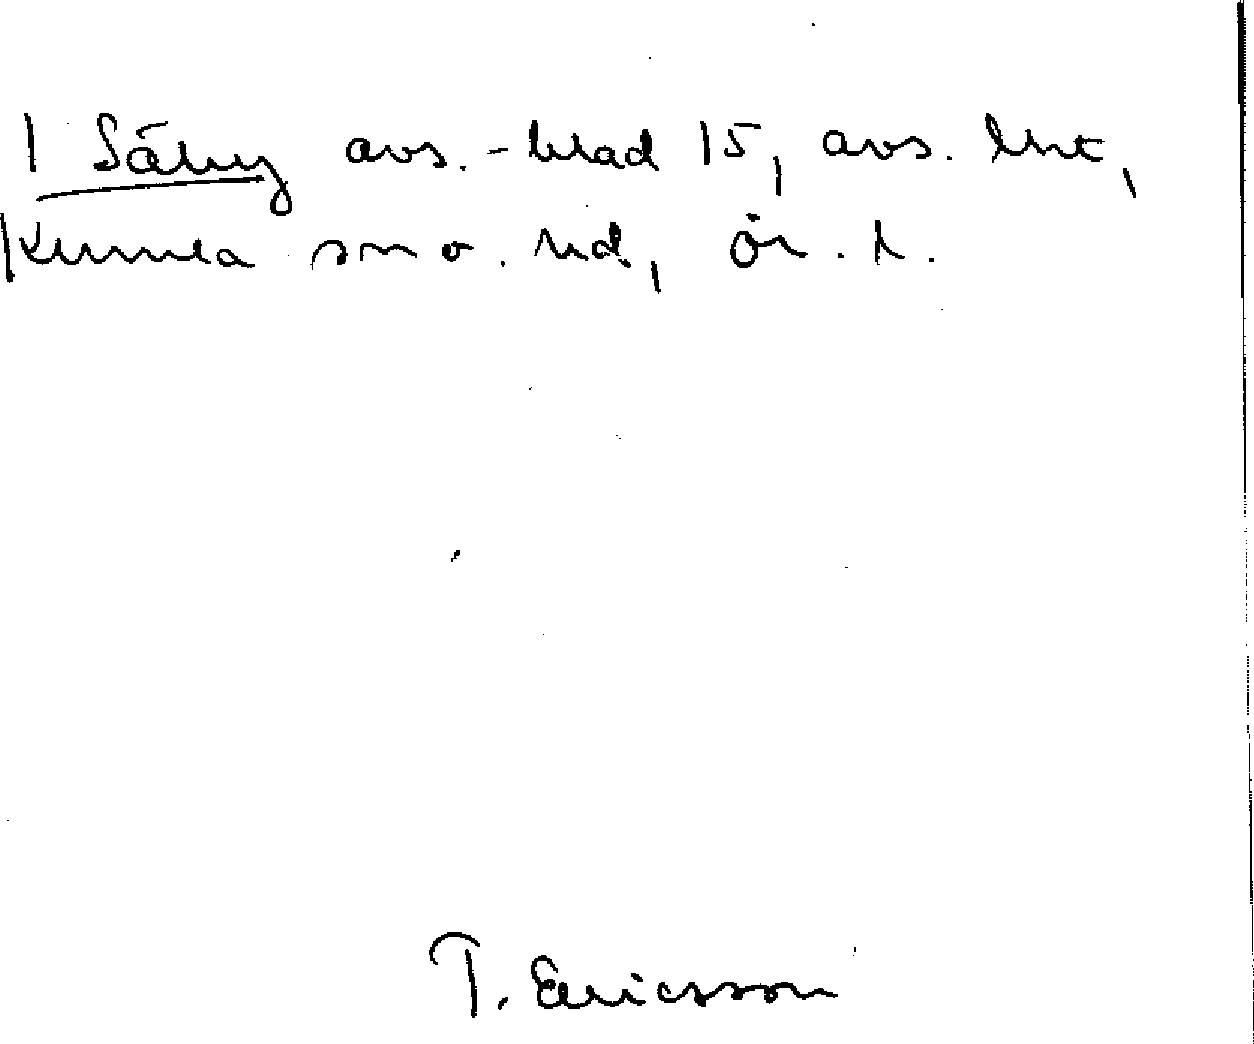 1 Säby avs.-blad 15, avs. lht,
Kumla sn o. hd, ör. l.
T. Ericsson